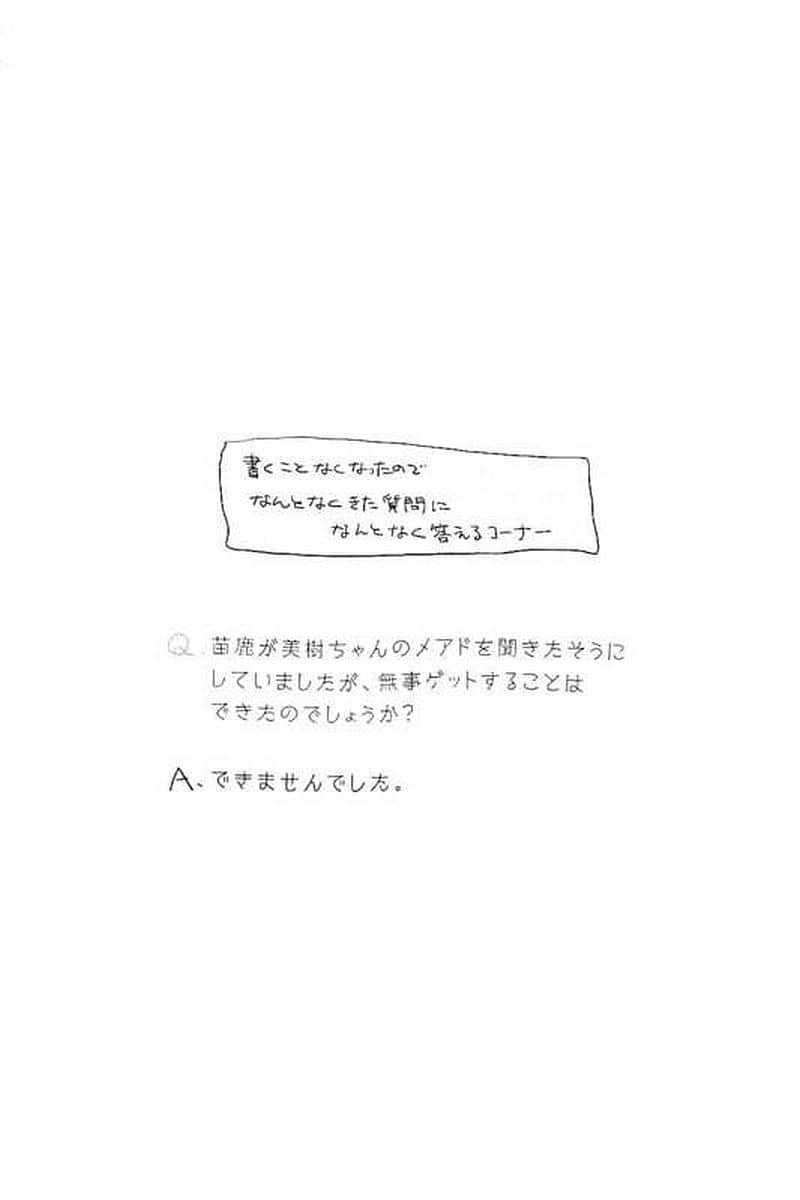 書くことなくなったので
なんとなくきた質問に
なんとなく答えるコーナー
Q.苗鹿が美樹ちゃんのメアドを聞きたそうに
していましたが、無事ゲットすることは
できたのでしょうか？
A、できませんでした。